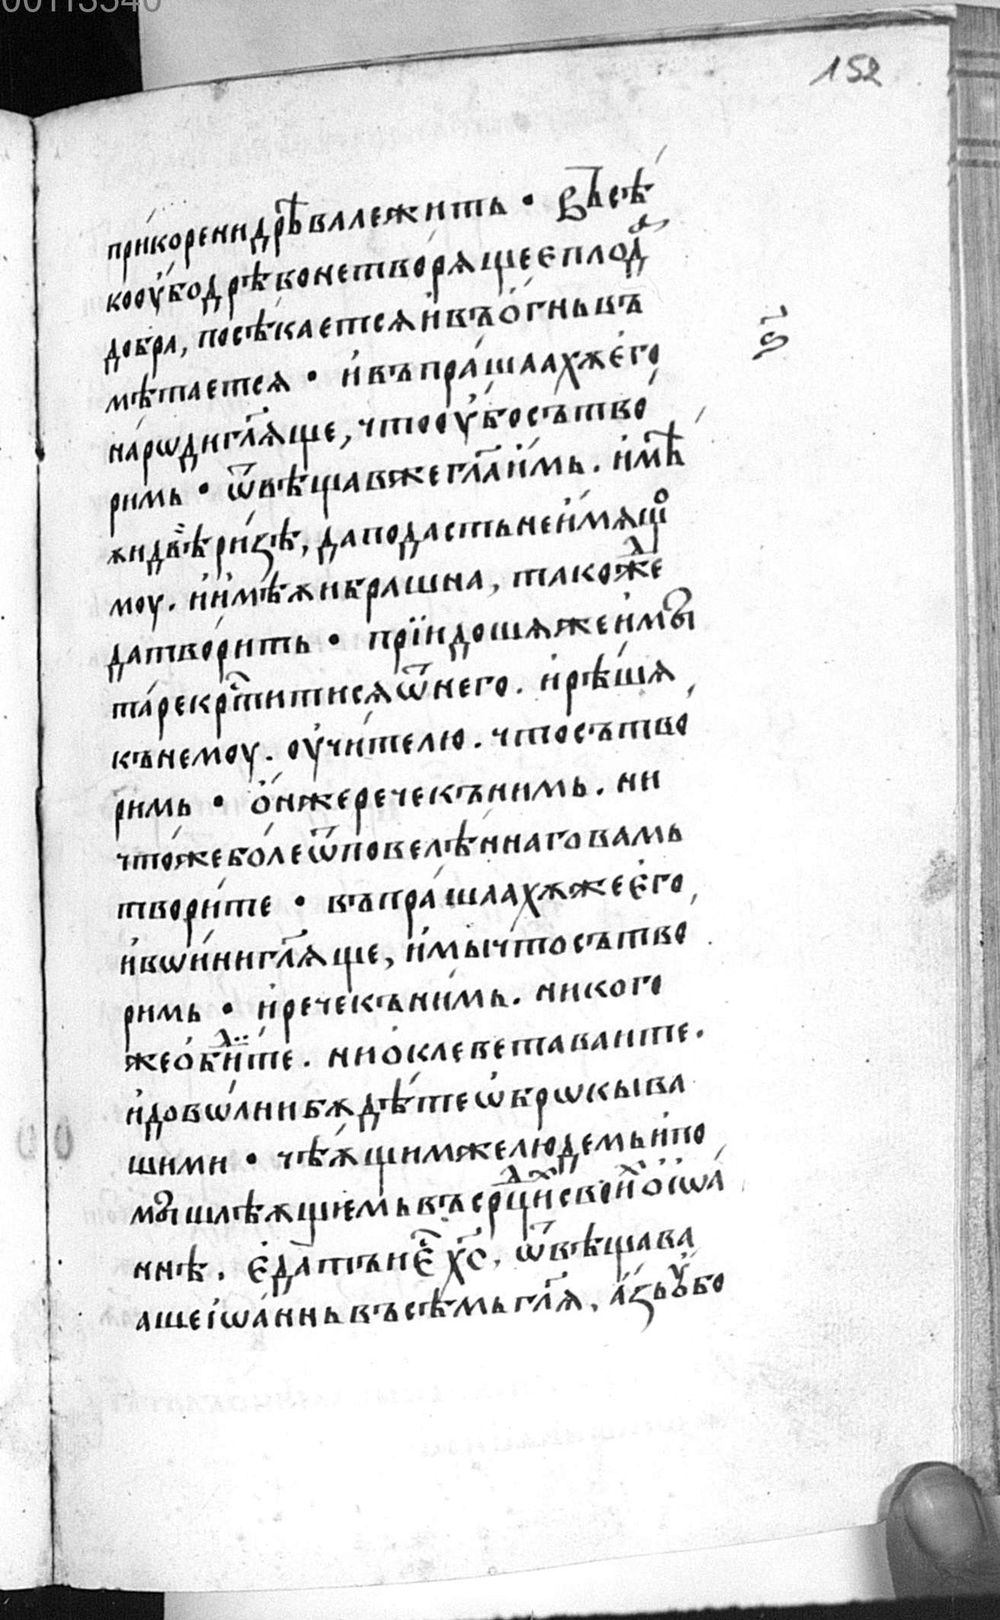 00113540
152
прикорени дрѣва лежить · Въсѣ
кооу҆бодрѣвонетворѧщееплода
добра, посѣкаетсѧ и҆въо҆гньвъ
мѣтаетсѧ · и҆въпрашаахѫе҆го
нарѡдигл҃ѧще, чтооу҆босътво
римь · ѿвѣщавжегл҃аи҆мь. и҆мѣ
ѧидвѣ ризѣ, даподастьнеи҆мѧщо
моу. и҆и҆мѣѧибрашна, такожде
датворить · прїидошѧжеи҆мы
тарекрⷭ҇титисѧѿнего. и҆рѣшѧ
кънемоу. оу҆чителю. чтосътво
римь · о҆нжеречекънимь. ни
чтожеболеѿповелѣннаговамь
творите · въпрашаахѫжеего,
и҆вѡи҆нигл҃ѧще, и҆мычтосътво
римь · и҆речекънимь. никого
жео҆бидите. ниоклеветаваите.
и҆довѡлнибѫдѣтеѡ҆брѡкыва
шими · чѣѫщимжелюдемьи҆по
мышлѣѫщемьвъсрⷣцихсвоихо҆і҆ѡа
ннѣ. е҆датънеⷭ҇хс҃. ѿвѣщава
ащеі҆ѡаннъвъсѣмьгл҃ѧ. а҆зьоубо
ѕ҃і